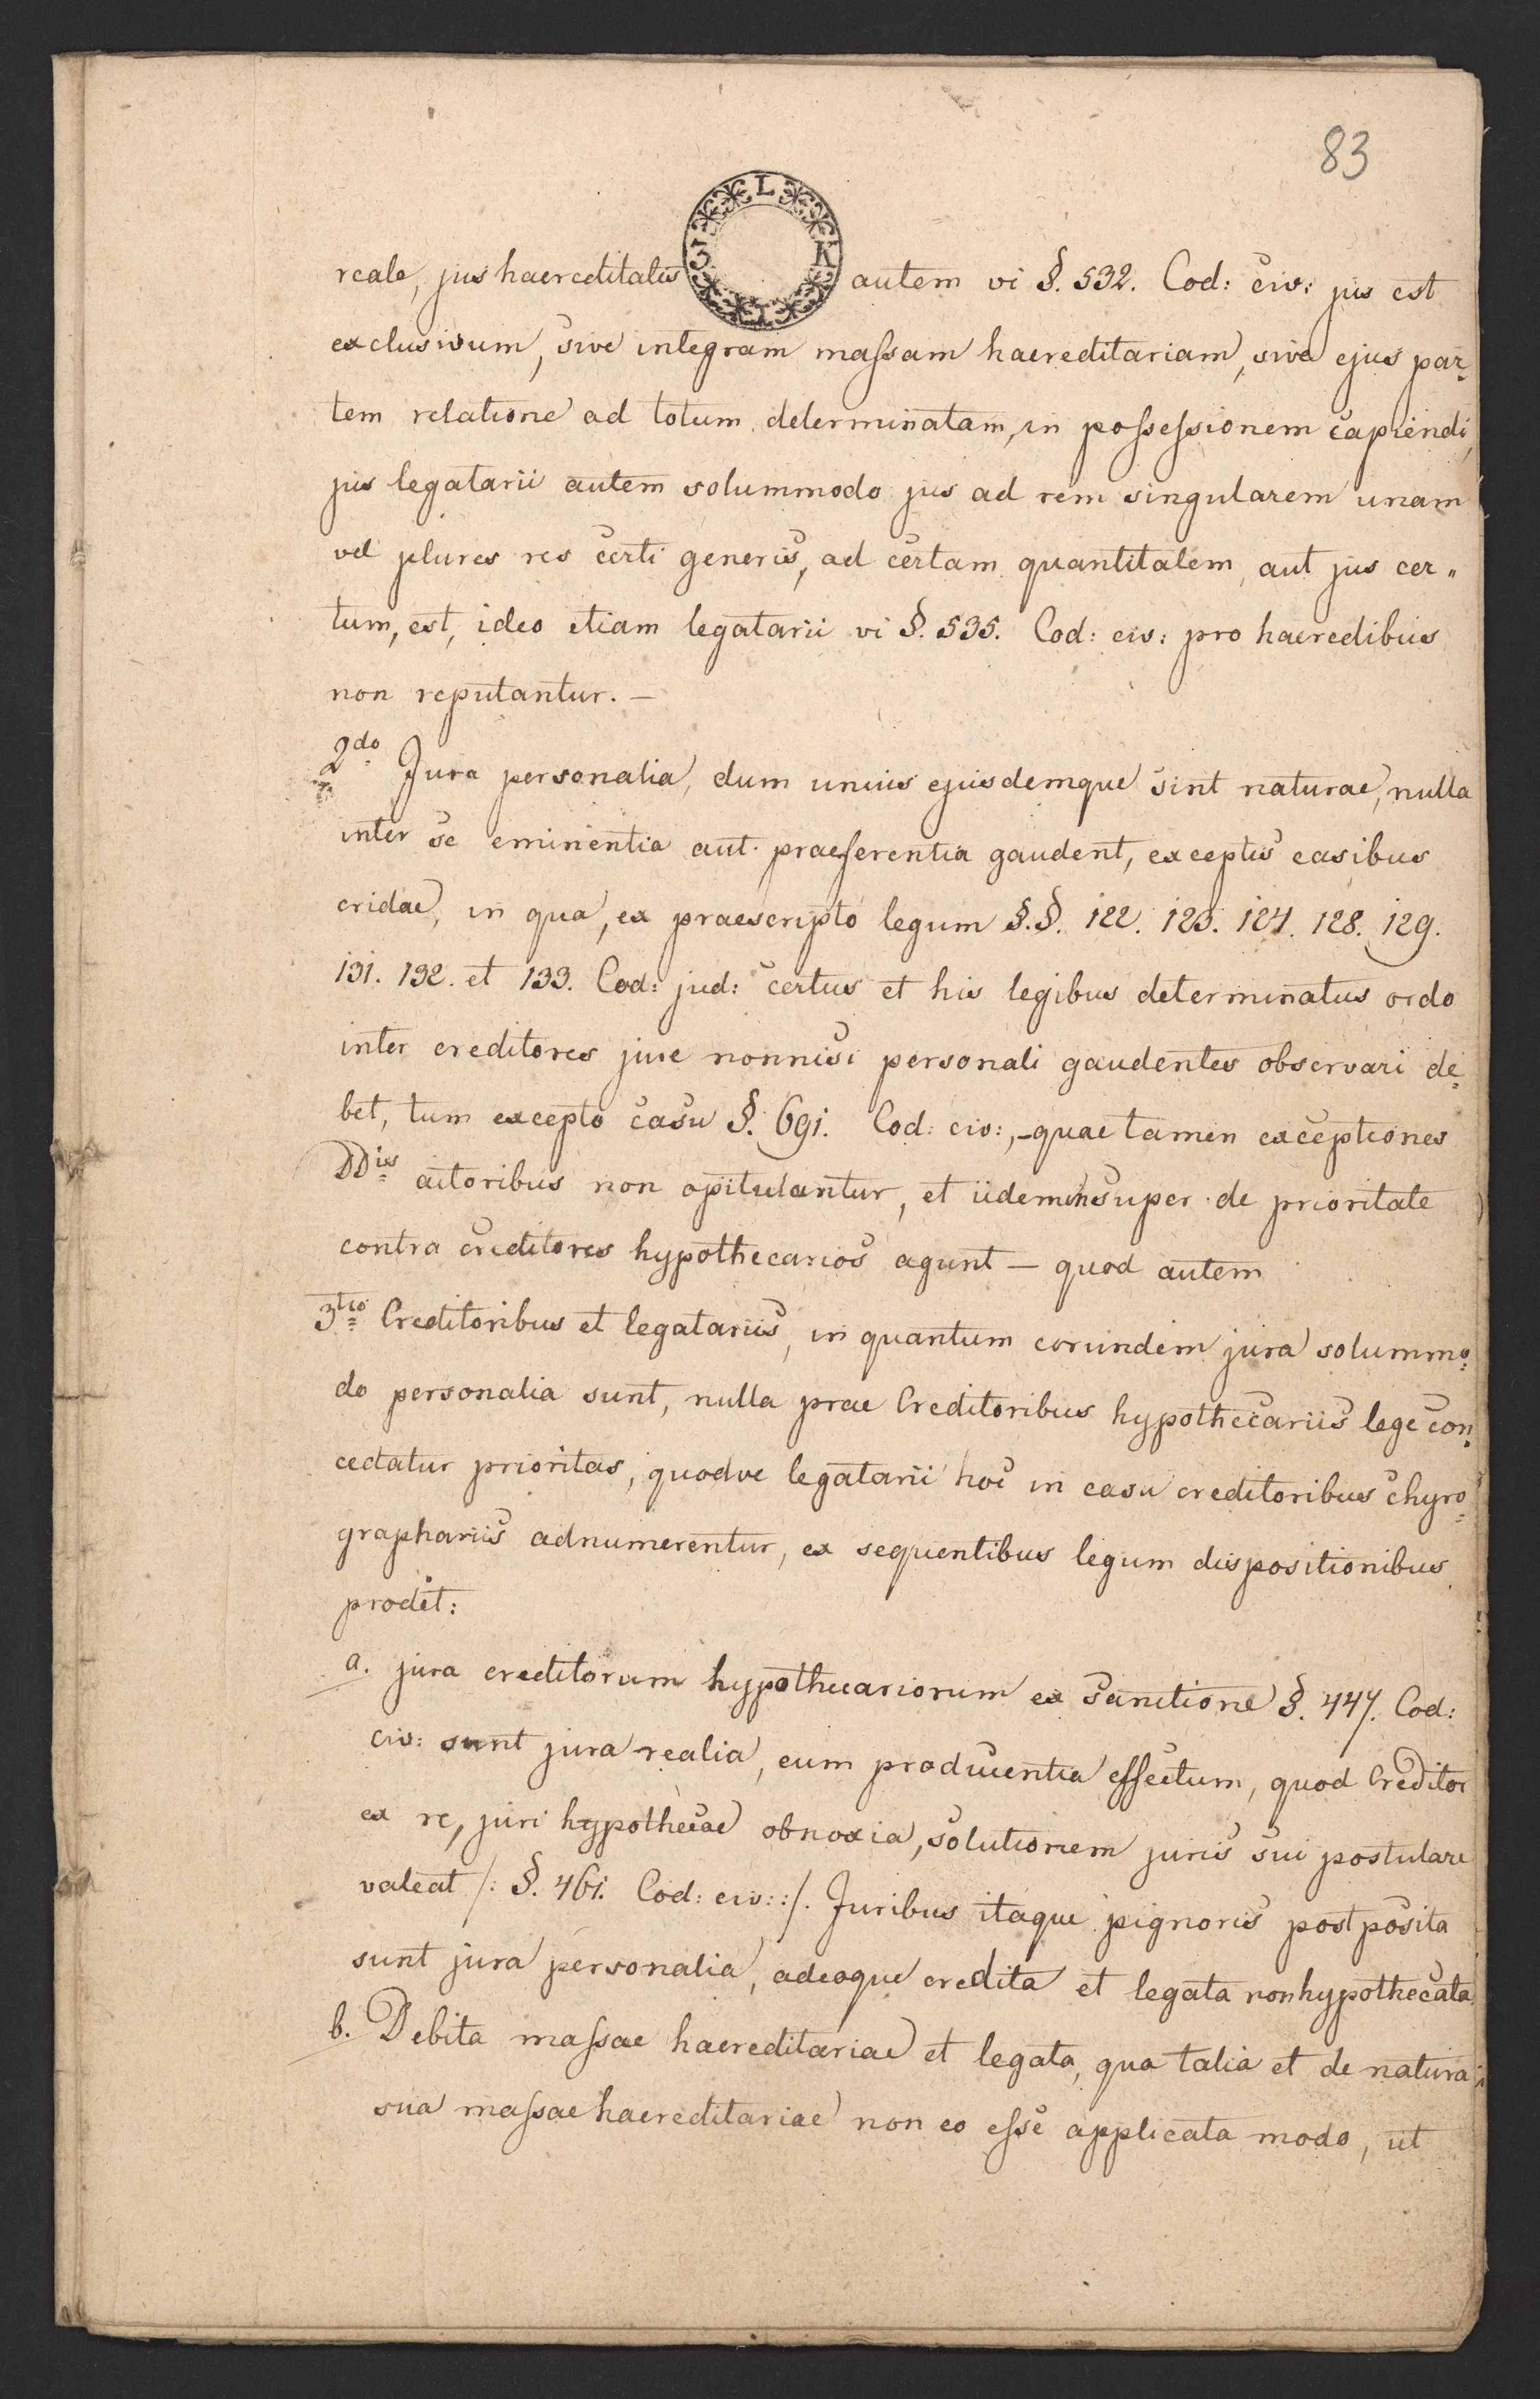 83
L
3 K
reale, jus haereditatis autem vi §. 532. Cod: civ: jus est
exclusivum, sive integram massam haereditariam, sive ejus par=
tem relatione ad totum determinatam, in possessionem capiendi,
jus legatarii autem solummodo jus ad rem singularem unam
vel plures res certi generis, ad certam quantitatem, aut jus cer„
tum, est, ideo etiam legatarii vi §. 535. Cod: civ: pro haeredibus
non reputantur. —
2do Jura personalia, dum unius ejusdemque sint naturae, nulla
inter se eminentia aut praeferentia gaudent, exceptis casibus
cridae, in qua, ex praescripto legum §.§. 122. 123. 124. 128. 129.
131. 132. et 133. Cod: jud: certus et his legibus determinatus ordo
inter creditores jure nonnisi personali gaudentes observari de=
bet, tum excepto casu §. 691. Cod: civ:, – quae tamen exceptiones
DDis actoribus non opitulantur, et iidem insuper de prioritate
contra creditores hypothecarios agunt — quod autem
3tio Creditoribus et legatariis, in quantum eorundem jura solummo=
do personalia sunt, nulla prae Creditoribus hypothecariis lege con=
cedatur prioritas, quodve legatarii hoc in casu creditoribus chyro=
graphariis adnumerentur, ex sequentibus legum dispositionibus
prodit:
a. jura creditorum hypothecariorum ex Sanctione §. 447. Cod:
civ: sunt jura realia, eum producentia effectum, quod Creditor
ex re, juri hypothecae obnoxia, solutionem juris sui postulare
valeat /: §. 461. Cod: civ: :/. Juribus itaque pignoris postposita
sunt jura personalia, adeoque credita et legata non hypothecata
b. Debita massae haereditariae et legata, qua talia et de natura
sua massae haereditariae non eo esse applicata modo, ut